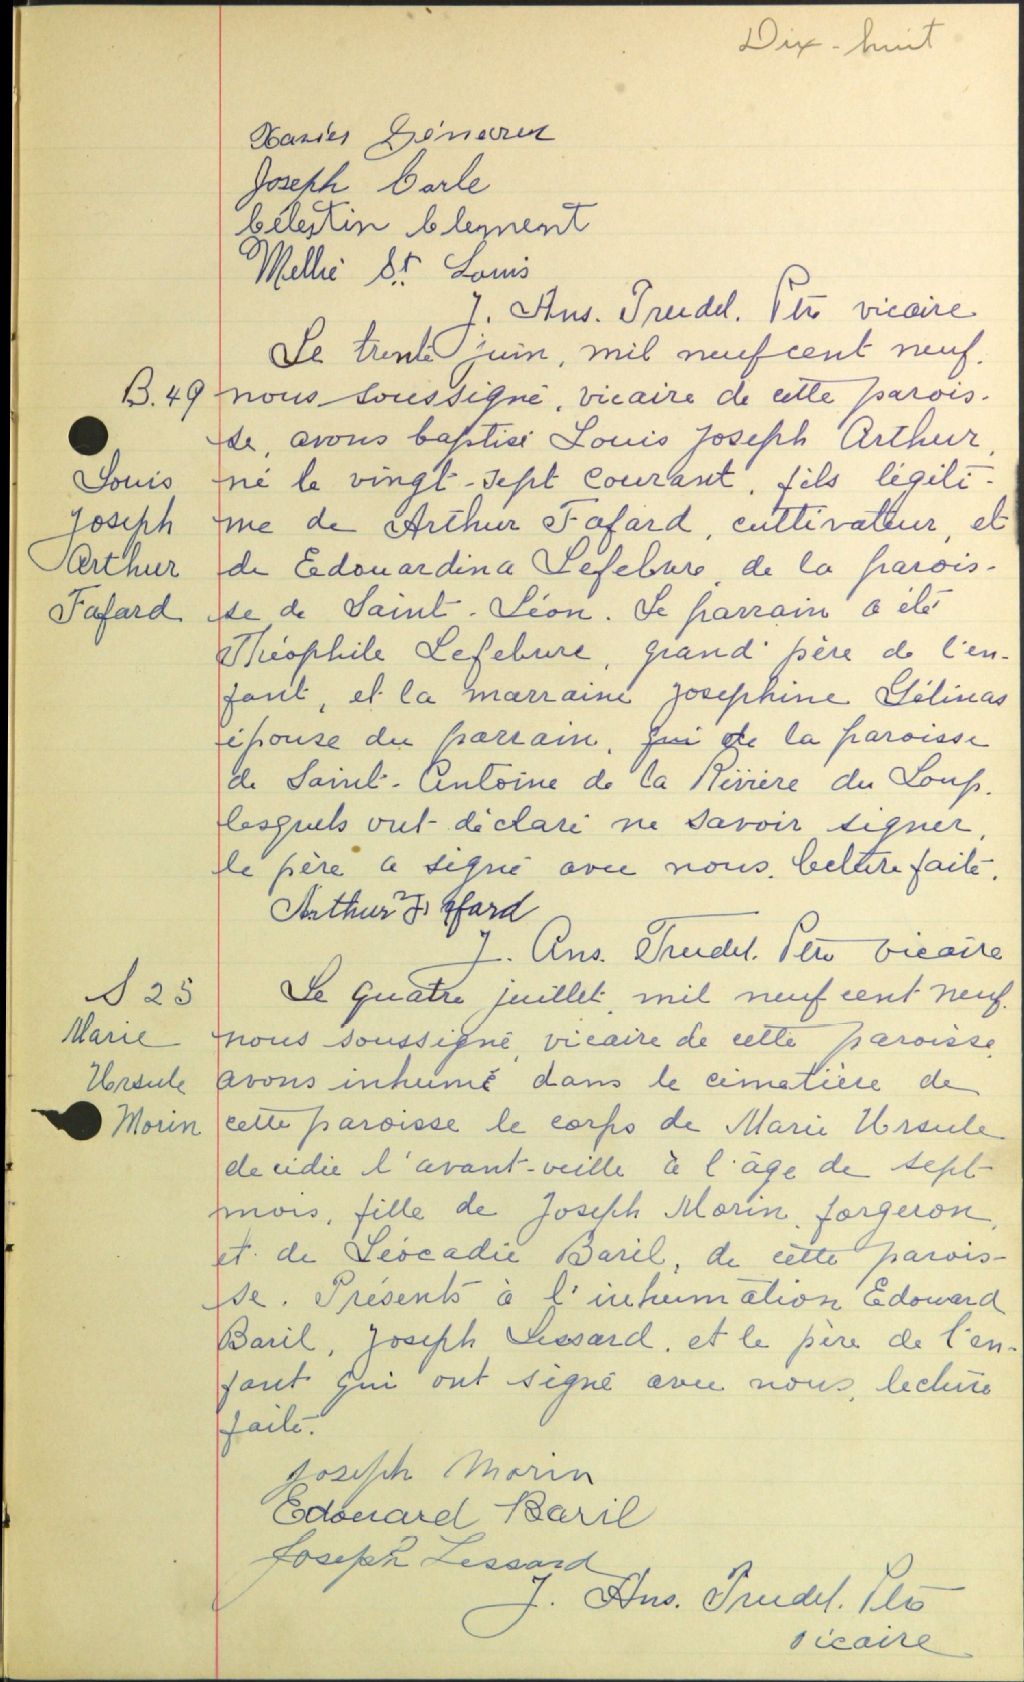 Dix-huit
Joseph Carle
Célestin Clement
Mellie St Louis
J. Ans. Trudel. Ptre vicaire
Le trente juin, mil neuf cent neuf.
B. 49
nous soussigné, vicaire de cette parois-
se, avons baptisé Louis Joseph Arthur,
Louis
Joseph
Arthur
Fafard
né le vingt-sept courant, fils légiti-
me de Arthur Fafard, cultivateur, et
de Edouardina Lefebvre, de la parois-
se de Saint-Léon. Le parrain a été
Théophile Lefebvre, grand-père de l'en-
fant, et la marraine Josephine Gélinas
épouse du parrain, de la paroisse
de Saint-Antoine de la Rivière du Loup.
lesquels ont déclaré ne savoir signer,
le père a signé avec nous. lecture faite.
Arthur Fafard
J. Ans. Trudel. Ptre vicaire
S 25
Marie
Ursule
Morin
Le quatre juillet, mil neuf cent neuf.
nous soussigné, vicaire de cette paroisse,
avons inhumé dans le cimetière de
cette paroisse le corps de Marie Ursule
décédie l'avant-veille à l'âge de sept
mois, fille de Joseph Morin, forgeron,
et de Léocadie Baril, de cette parois-
se. Présents à l'inhumation Edouard
Baril, Joseph Lessard, et le père de l'en-
fant qui ont signé avec nous, lecture
faite.
Joseph Morin
Edouard Baril
Joseph Lessard
J. Ans. Trudel. Ptre
vicaire